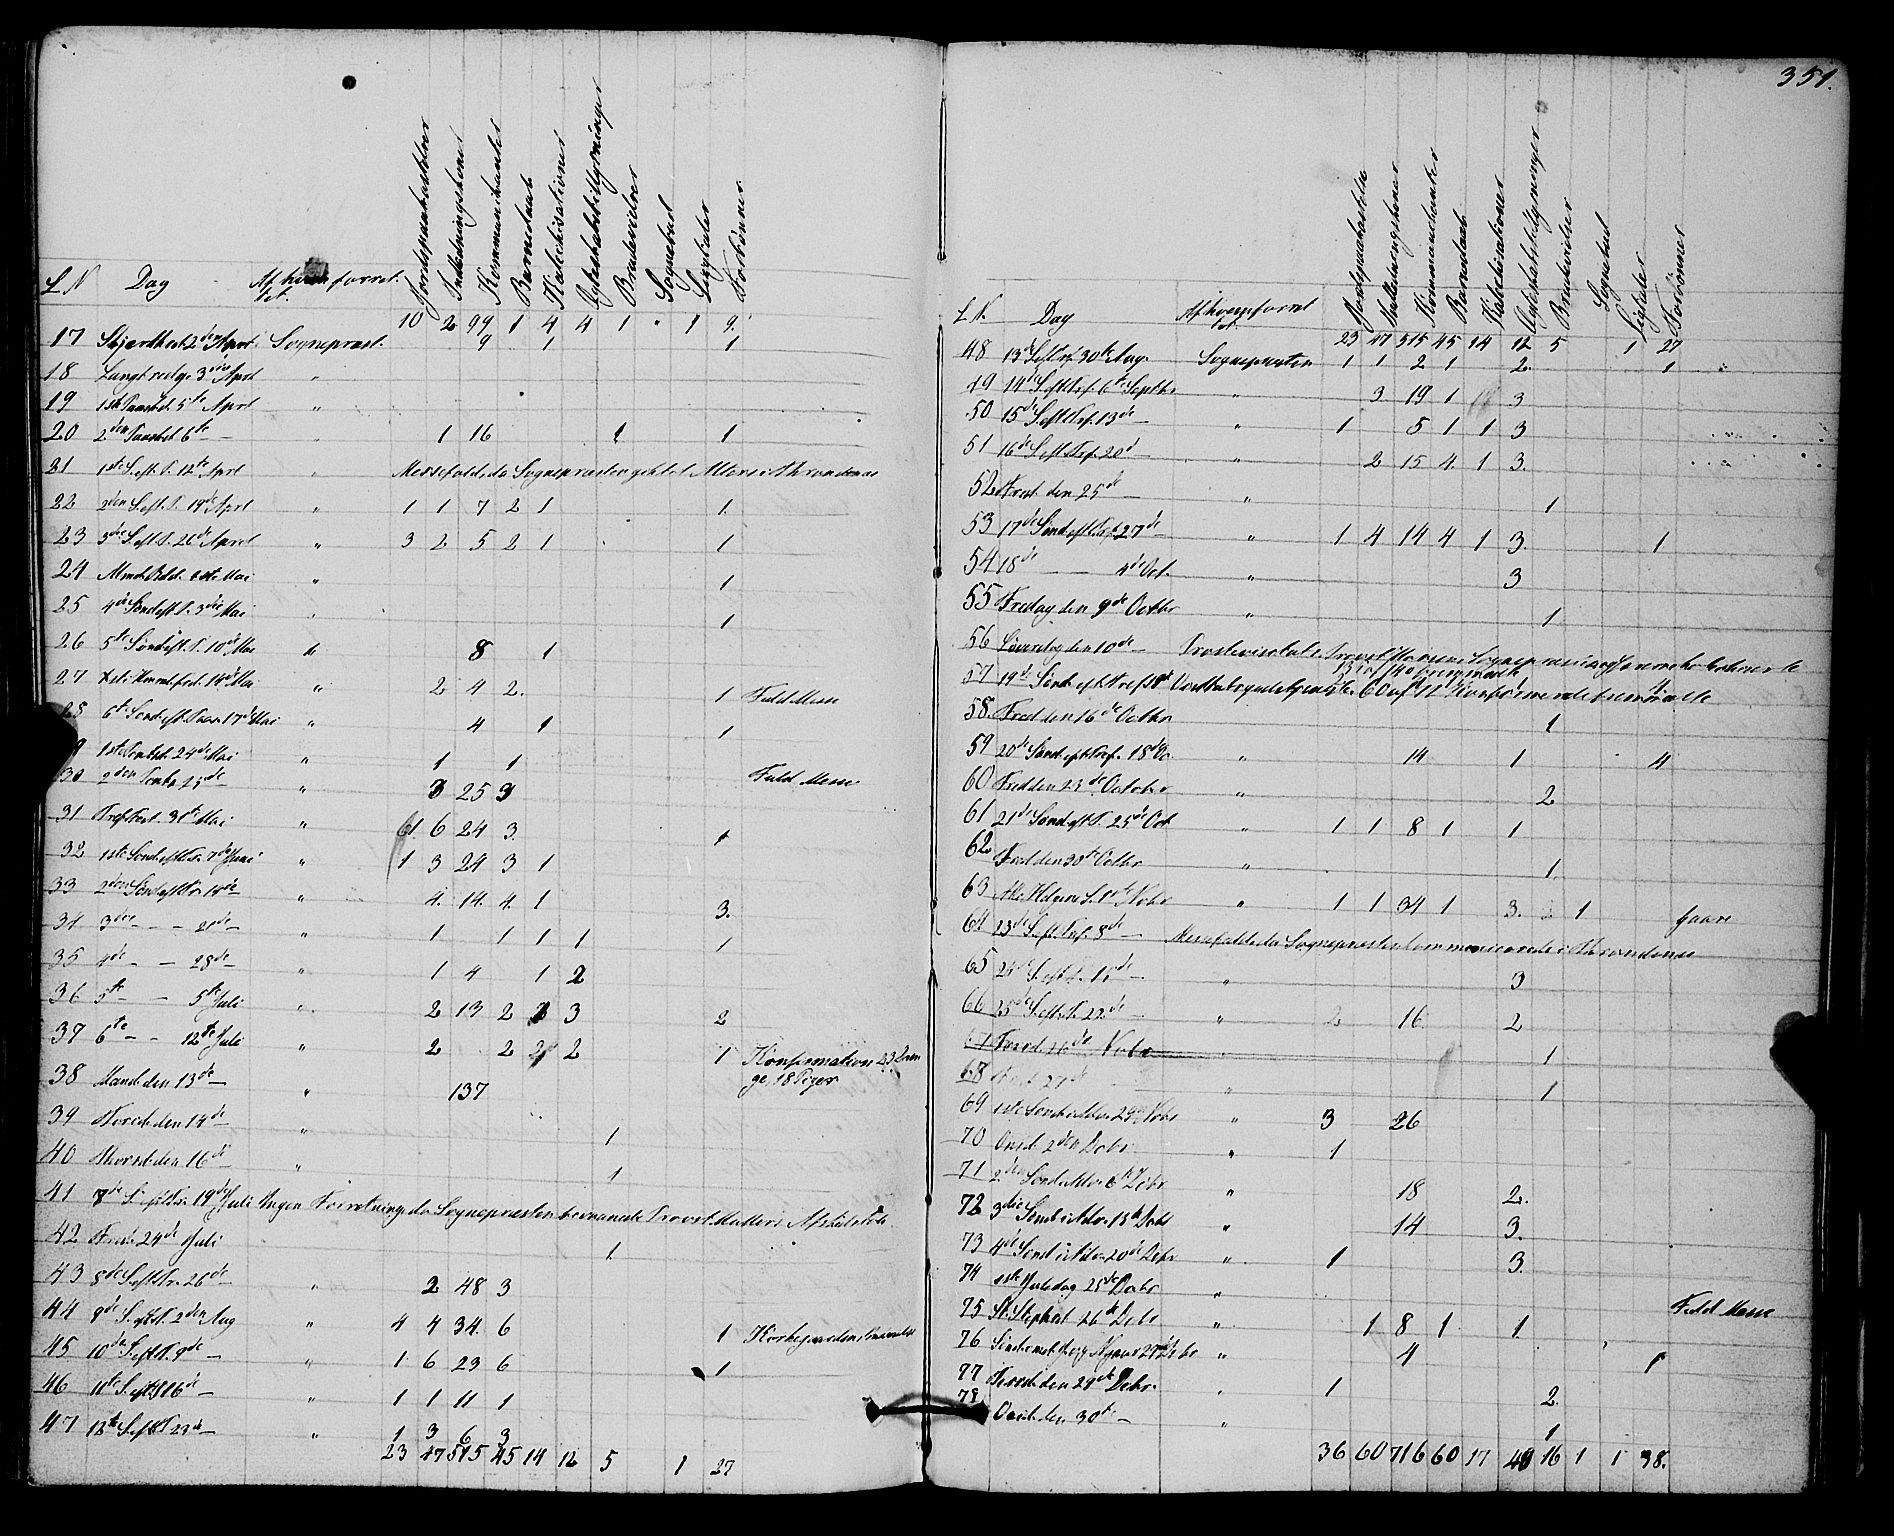 351.
L N Dag Af hvem forret- Jordspaakastelser Indledningskoner Kommunikanter Barnedaab Katechisationer Ægteskabstillysninger Brudevielser Sognebud Ligtaler Forbönner
tet.
10 2 99 1 4 4 1 " 1 9.
17 Skjærthorsd. 2de April Sognepræst. 9 1 1
18 Langfredg. 3die April "
19 1ste Paaskd. 5te April "
20 2den Paaskd 6te — 1 16 1 1
21 1ste S. eft. P. 12te April " Messefald, da Sognepræsten gik til Alters i Throndenæs
22 2den S. eft. P. 19de April " 1 1 7 2 1 1.
23 3die S. eft. P. 26de April " 3 2 5 2 1 1
24 Alm. Bededg. 1ste Mai " 1
25 4de Sönd. eft. P. 3die Mai " 1
26 5te Sönd. eft. P. 10de Mai 8 1
27 Kristi Himmelfart. 14de Mai " 2 4 2. 1 Fald Messe
28 6te Sönd. eft. Paas. 17de Mai " 4 1 1
29 1ste Pintsd. 24de Mai " 1 1
30 2den Pintsd 25de " 3 25 3 Fald Messe
31 Tref. Fest. 31te Mai " 6 24 3. 1
32 1ste Sönd. eft. Tr. 7de Juni " 1 3 24 3 1
33 2den Sönd. eft. Tr. 14de " 4. 14. 4. 1 3.
34 3die — — 21de — " 1 1 1 1 1
35 4de — — 28de — " 1 4 1 2
36 5te — — 5te Juli " 2 13 2 1 3 2
37 6te — — 12te Juli " 2 2 2 2 1 Konfirmation 23 Dren-
38 Mand. den 13de — " 137 ge, 18 Piger
39 Tirsd. den 14de — " 1
40 Thorsd. den 16de — " 1
41 7de S. eft. Tr. 19de Juli Ingen Forretning, da Sognepræsten bivaanede Provst Müllers Afskedstale
42 Fred. 24de Juli 1.
43 8de S. eft. Tr. 26de — " 2 48 3
44 9de S. eft. T. 2den Aug " 4 4 34. 6 1 Kirkegaarden
45 10de S. eft. T. 9de — " 1 6 23 6 1
46 11te S. eft. T. 16de — " 1 1 11 1
47 12te S. eft. T. 23de — " 1 3 6 3
23 47 515 45 14 12 5 1 27
L. N. Dag Af hvem forret Jordspaakastelse Indledningskoner Kommunikanter Barnedaab Katechisationer Ægteskabstillysninger Brudevielser Sognebud Ligtaler Forbönner
tet.
23 47 515 45 14 12 5 1 27
48 13de S. eft. Tref. 30te Aug. Sognepræsten 1 1 2 1 2. 1
49 14de S. eft. Tref. 6te Septbr " 3 19 1 3
50 15de S. eft. Tref. 13de — " 1 5 1 1 3
51 16de S. eft. Tref. 20de " 2 15 4. 1 3.
52 Fred. den 25de — " 1
53 17de Sönd. eft. Tref. 27de " 1 4 14 4 1 3. 1
54 18de — 4de Oct. " 3
55 Fredag den 9de Octbr " 1
56 Löverdag den 10de — Provstevisitats. Provst
57 19de Sönd. eft. Tref. 11te 4
58. Fred den 16de Octbr 1
59 20de Sönd. eft. Tref. 18de Oc. " 14 1 4
60 Fred den 23de October " 2
61 21de Sönd. eft. T. 25de Oct. " 1 1 8 1 1
62 Fred den 30te Octbr " 1.
63 Alle Helgens S. 1ste Nobr " 1 1 34 1 3. 1
64 23de S. eft. Tref. 8de — Messefald, da Sognepræsten communicerede i Throndenæs
65 24de S. eft. T. 15de — " 3
66 25de S. eft. T. 22de — " 2 16 2
67 " 1
68 Fred. 27de " 1
69 1ste Sönd. i Adv. 29de Nobr " 3 26
70 Onsd. 2den Debr. " 1
71 2den Sönd. i Adv. 6te Debr " 18 2.
72 3die Sönd. i Adv. 13de Debr " 14 3.
73 4de Sönd. i Adv. 20de Debr " 1 3.
74 1ste Juledag 25de Decbr "
75 St. Stephsd. 26de Debr " 1 8 1 1. Fald Messe
76 Sönd. mel. Jul og Nytaar 27de Debr " 4 1
77 Tirsd. den 29de Debr. " 1 2.
78 Onsd. den 30te — " 1
36 60 716 60 17 49 16 1 1 38.